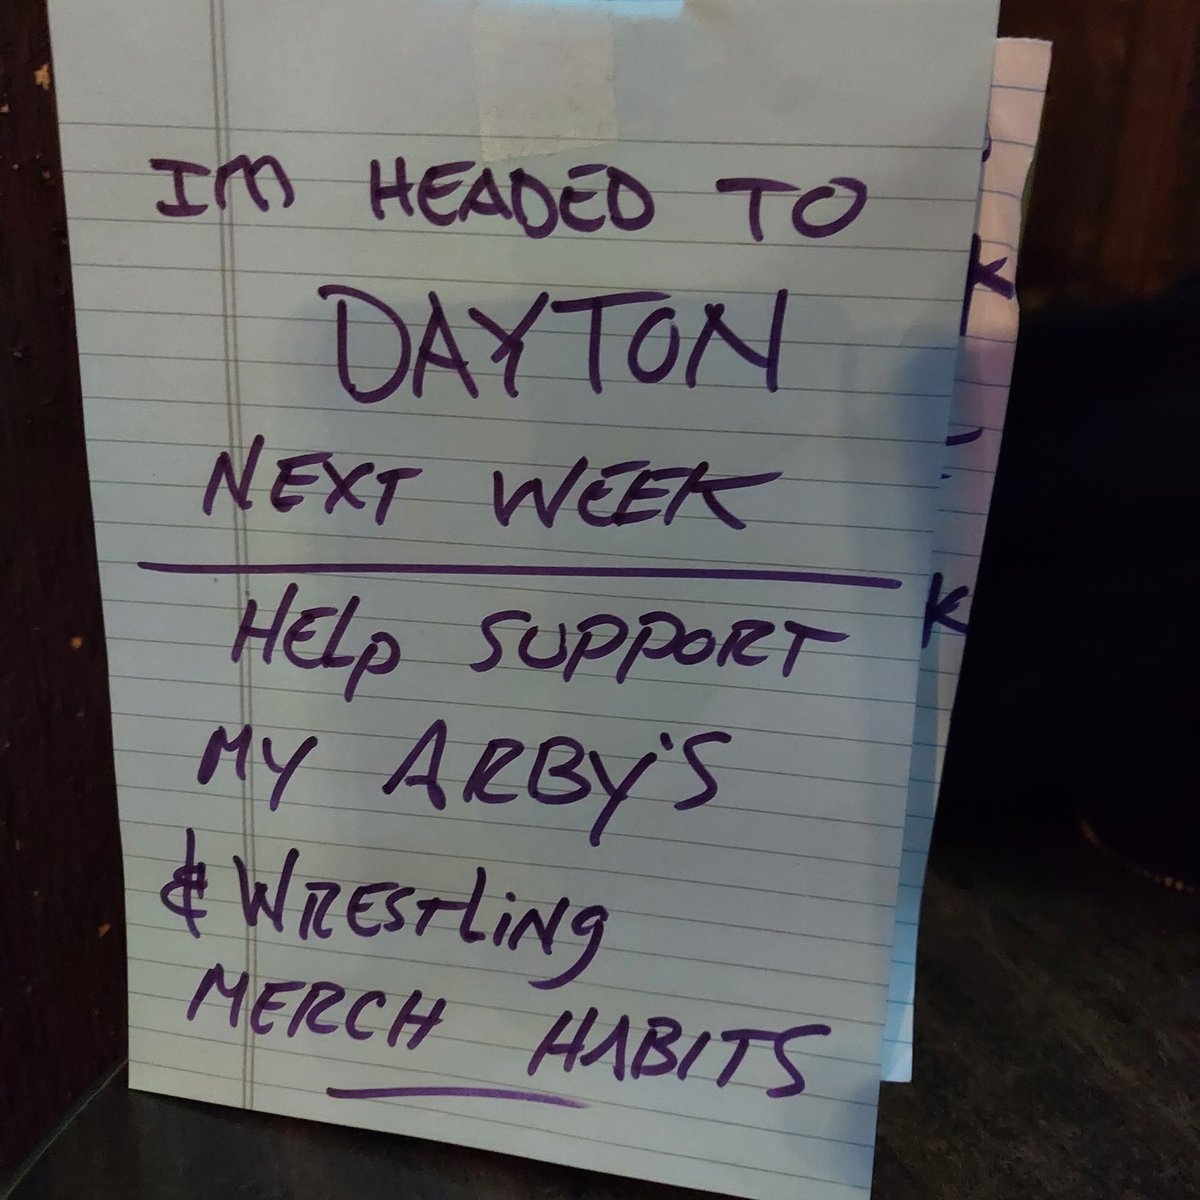 IM HEADED TO
DAYTON
NEXT WEEK
HELP SUPPORT
MY ARBY'S
& WRESTLING
MERCH HABITS